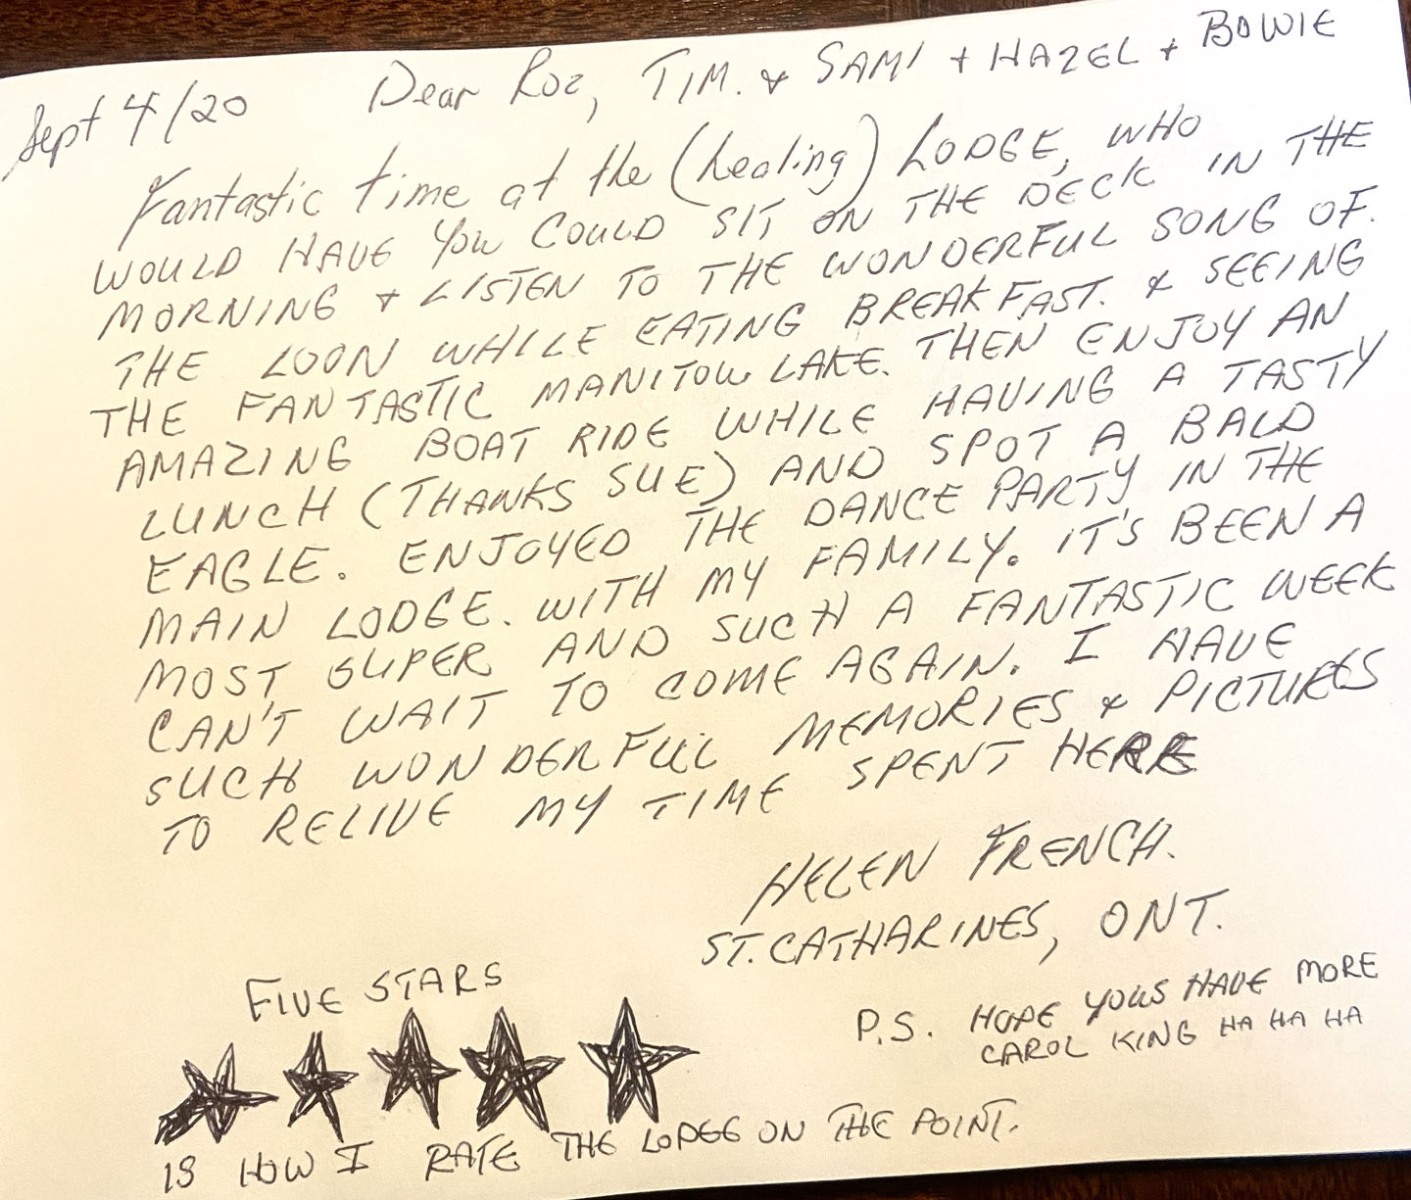 Sept 4/20 Dear Roz, TIM. & SAMI + HAZEL + BOWIE
Fantastic time at the (healing) LODGE, WHO
WOULD HAVE YOU COULD SIT ON THE DECK IN THE
MORNING + LISTEN TO THE WONDERFUL SONG OF.
THE LOON WHILE EATING BREAKFAST. & SEEING
THE FANTASTIC MANITOU LAKE. THEN ENJOY AN
AMAZING BOAT RIDE WHILE HAVING A TASTY
LUNCH (THANKS SUE) AND SPOT A BALD
EAGLE. ENJOYED THE DANCE PARTY IN THE
MAIN LODGE. WITH MY FAMILY. IT'S BEEN A
MOST SUPER AND SUCH A FANTASTIC WEEK
CAN'T WAIT TO COME AGAIN. I HAVE
SUCH WONDERFUL MEMORIES & PICTURES
TO RELIVE MY TIME SPENT HERE
HELEN FRENCH.
ST. CATHARINES, ONT.
P.S. HOPE YOUS HAVE MORE
CAROL KING HA HA HA
FIVE STARS
IS HOW I RATE THE LODGE ON THE POINT.